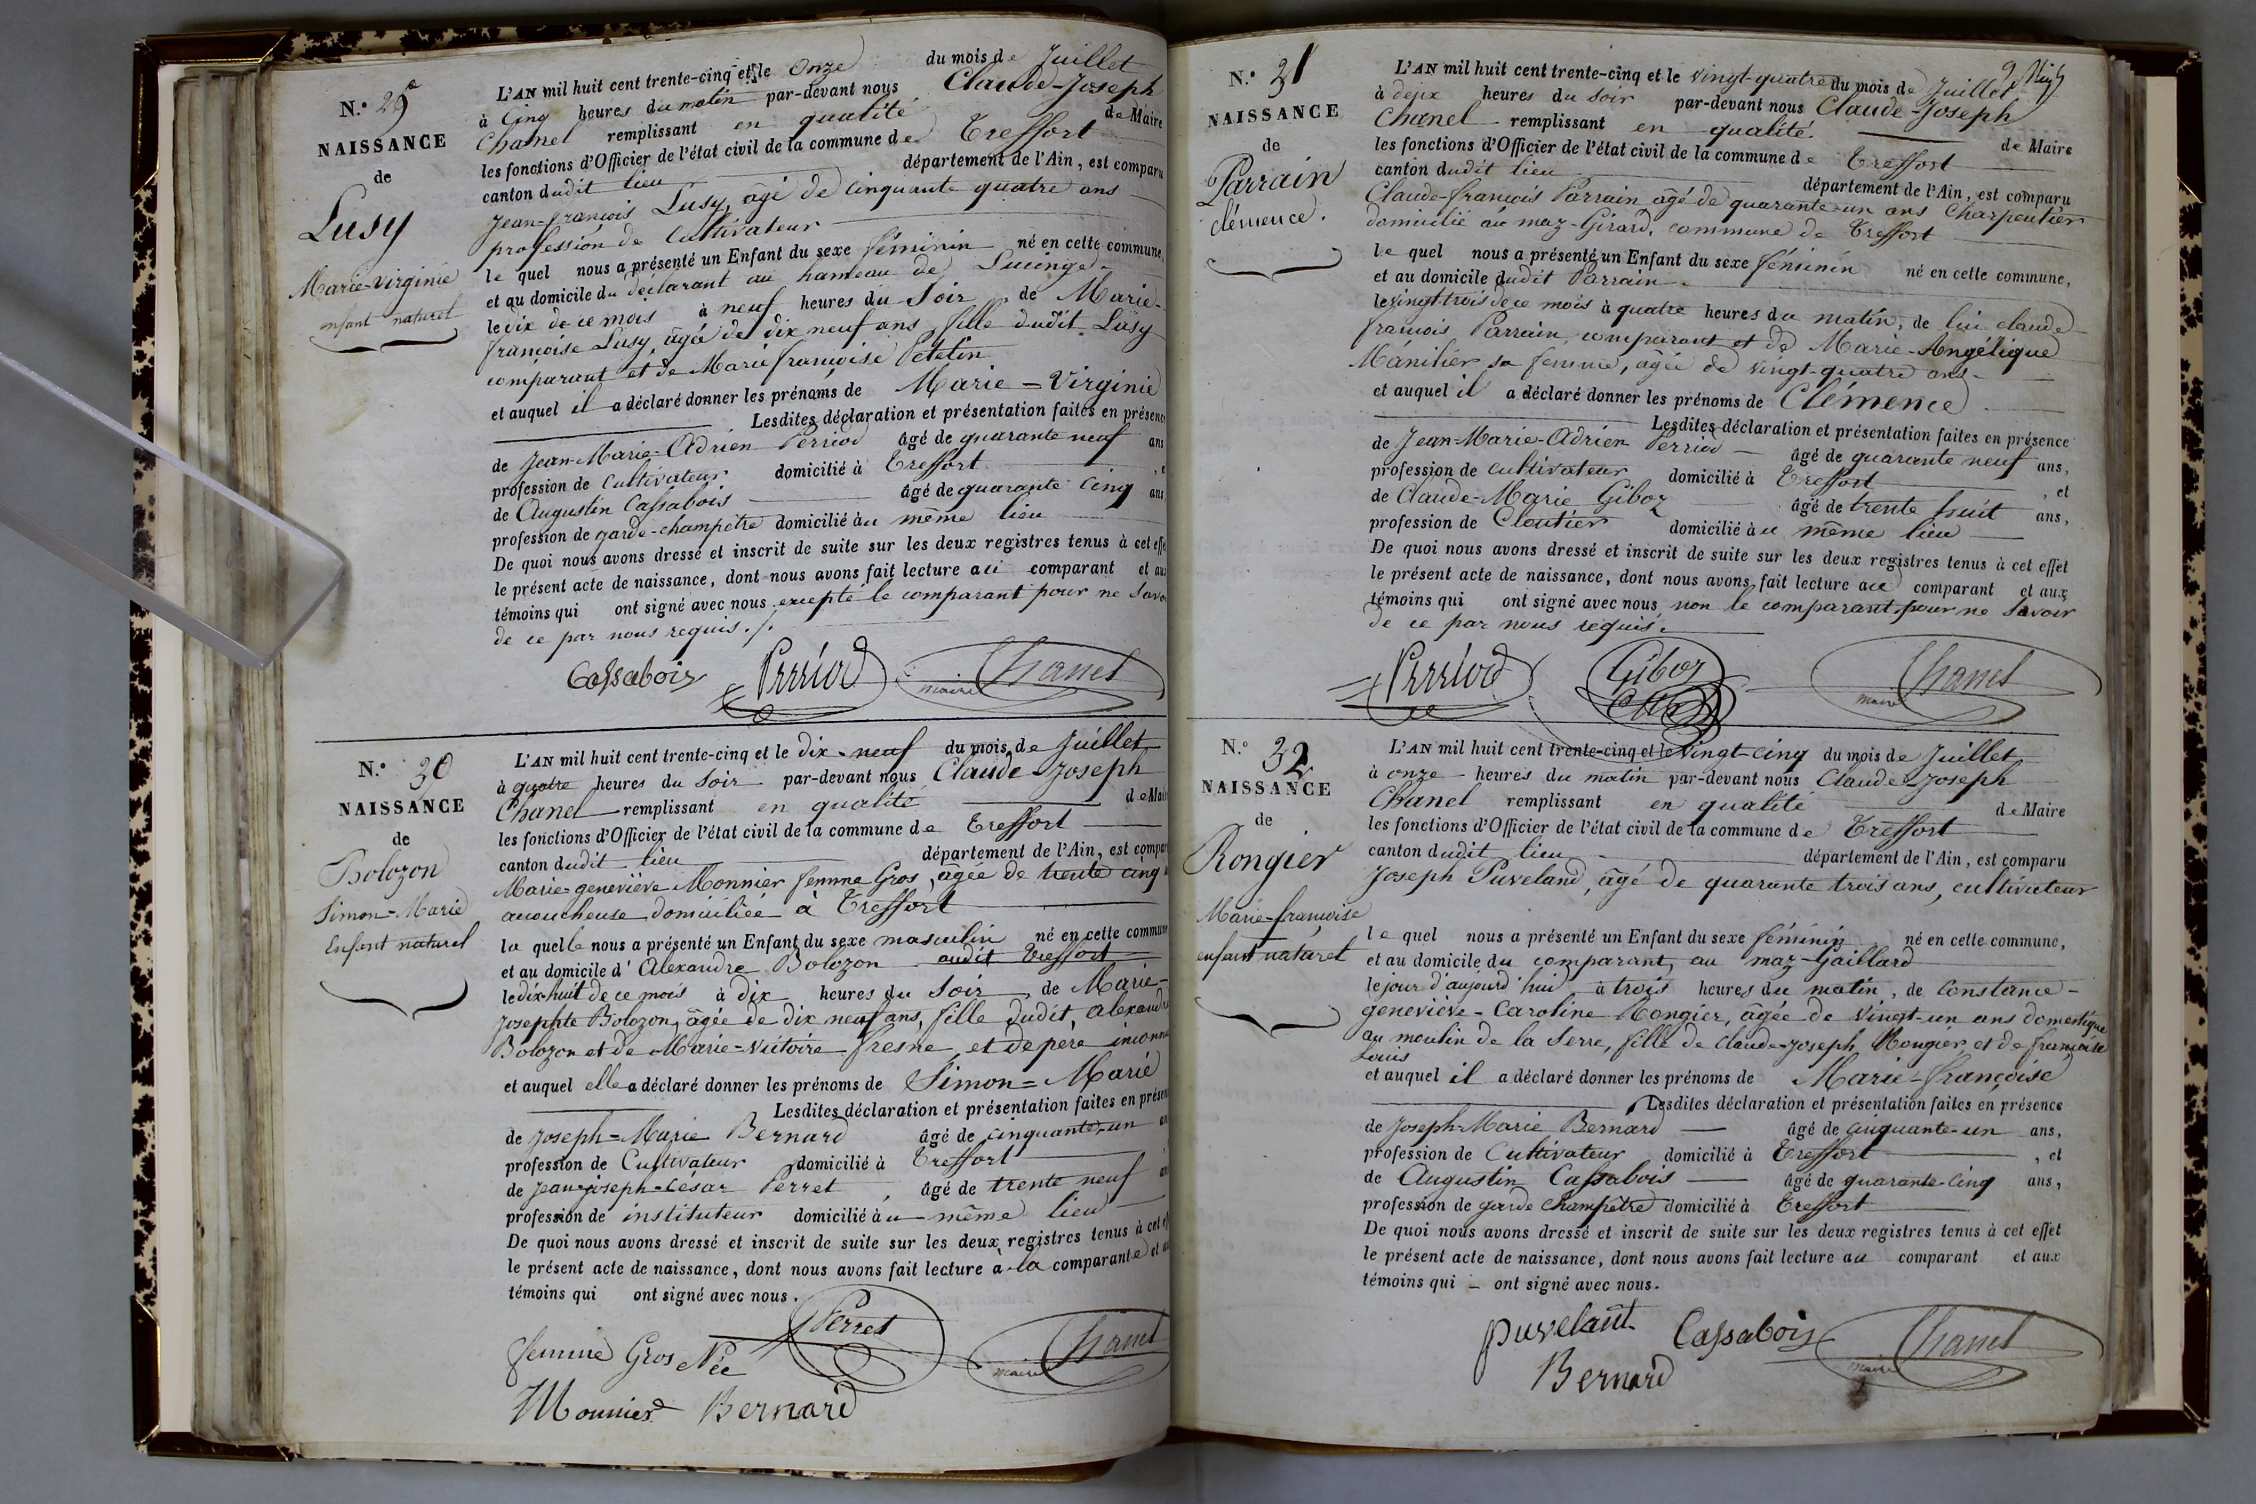 N.° 29
NAISSANCE
de
Lusy
Marie-Virginie
enfant naturel
L'AN mil huit cent trente-cinq et le Onze du mois de Juillet
à Cinq heures du matin par-devant nous Claude-Joseph
Chanel remplissant en qualité de Maire
les fonctions d'Officier de l'état civil de la commune de Treffort
canton dudit lieu département de l'Ain, est comparu
Jean-françois Lusy, âgé de cinquante quatre ans
profession de Cultivateur
le quel nous a présenté un Enfant du sexe féminin né en cette commune,
et au domicile du déclarant au hameau de Lucinge
le dix de ce mois à neuf heures du Soir, de Marie-
françoise Lusy, âgée de dix neuf ans, fille dudit Lusy
comparant et de Marie françoise Petetin
et auquel il a déclaré donner les prénoms de Marie = Virginie
Lesdites déclaration et présentation faites en présence
de Jean-Marie-Adrien Perriod âgé de quarante neuf ans
profession de Cultivateur domicilié à Treffort, e
de Augustin Cassabois âgé de quarante cinq ans
profession de garde-champêtre domicilié au même lieu
De quoi nous avons dressé et inscrit de suite sur les deux registres tenus à cet effe
le présent acte de naissance, dont nous avons fait lecture au comparant et aux
témoins qui ont signé avec nous excepté le comparant pour ne Savo
de ce par nous requis ./.
Cassabois Perriod Chanel
maire
N.° 30
NAISSANCE
de
Bolozon
Simon = Marie
Enfant naturel
L'AN mil huit cent trente-cinq et le dix-neuf du mois de Juillet
à quatre heures du Soir par-devant nous Claude-Joseph
Chanel remplissant en qualité de Mair
les fonctions d'Officier de l'état civil de la commune de Treffort
canton dudit lieu département de l'Ain, est compar
Marie-geneviève Monnier femme Gros, âgée de trente cinq
accoucheuse domiciliée à Treffort
la quelle nous a présenté un Enfant du sexe masculin né en cette commun
et au domicile d'Alexandre Bolozon audit Treffort
le dix-huit de ce mois à dix heures du Soir, de Marie-
Josephte Bolozon, âgée de dix neuf ans, fille dudit Alexandre
Bolozon et de Marie-Victoire fresne, et de père inconnu
et auquel elle a déclaré donner les prénoms de Simon = Marie
Lesdites déclaration et présentation faites en présen
de Joseph = Marie Bernard âgé de cinquante-un an
profession de Cultivateur domicilié à Treffort
de Jean-joseph-César Perret, âgé de trente neuf an
profession de instituteur domicilié au même lieu
De quoi nous avons dressé et inscrit de suite sur les deux registres tenus à cet ef
le présent acte de naissance, dont nous avons fait lecture à la comparante et au
témoins qui ont signé avec nous.
femme Gros Née Perret Chanel
maire
Monnier Bernard
N.° 31
NAISSANCE
de
Parrain
clémence.
L'AN mil huit cent trente-cinq et le vingt-quatre du mois de Juillet
à deux heures du soir par-devant nous Claude-Joseph
Chanel remplissant en qualité de Maire
les fonctions d'Officier de l'état civil de la commune de Treffort
canton dudit lieu département de l'Ain, est comparu
Claude-françois Parrain âgé de quarante-un ans Charpentier
domicilié au maz-Girard, commune de Treffort
le quel nous a présenté un Enfant du sexe féminin né en cette commune,
et au domicile dudit Parrain
le vingt-trois de ce mois à quatre heures du matin, de lui claude-
françois Parrain, comparant et de Marie-Angélique
Mánilier sa femme, âgée de vingt-quatre ans
et auquel il a déclaré donner les prénoms de Clémence
Lesdites déclaration et présentation faites en présence
de Jean-Marie-Adrien Perriod âgé de quarante neuf ans,
profession de Cultivateur domicilié à Treffort, et
de Claude-Marie Giboz âgé de trente huit ans,
profession de Cloutier domicilié au même lieu
De quoi nous avons dressé et inscrit de suite sur les deux registres tenus à cet effet
le présent acte de naissance, dont nous avons fait lecture au comparant et aux
témoins qui ont signé avec nous, non le comparant pour ne Savoir
de ce par nous requis.
Perriod Giboz Chanel
maire
N.° 32
NAISSANCE
de
Rongier
Marie-françoise
enfant naturel
L'AN mil huit cent trente-cinq et le Vingt-cinq du mois de Juillet
à onze heures du matin par-devant nous Claude-Joseph
Chanel remplissant en qualité de Maire
les fonctions d'Officier de l'état civil de la commune de Treffort
canton dudit lieu département de l'Ain, est comparu
Joseph Puveland, âgé de quarante trois ans, cultivateur
le quel nous a présenté un Enfant du sexe féminin né en cette commune,
et au domicile du comparant, au maz-Gaillard
le jour d'aujourd'hui à trois heures du matin, de Constance-
geneviève-Caroline Rongier, âgée de Vingt-un ans domestique
au moulin de la Serre, fille de Claude-Joseph Rongier et de françoise
Louis
et auquel il a déclaré donner les prénoms de Marie-françoise
Lesdites déclaration et présentation faites en présence
de Joseph-Marie Bernard âgé de cinquante-un ans,
profession de Cultivateur domicilié à Treffort, et
de Augustin Cassabois âgé de quarante-cinq ans,
profession de garde champêtre domicilié à Treffort
De quoi nous avons dressé et inscrit de suite sur les deux registres tenus à cet effet
le présent acte de naissance, dont nous avons fait lecture au comparant et aux
témoins qui ont signé avec nous.
puvelant Cassabois Chanel
maire
Bernard